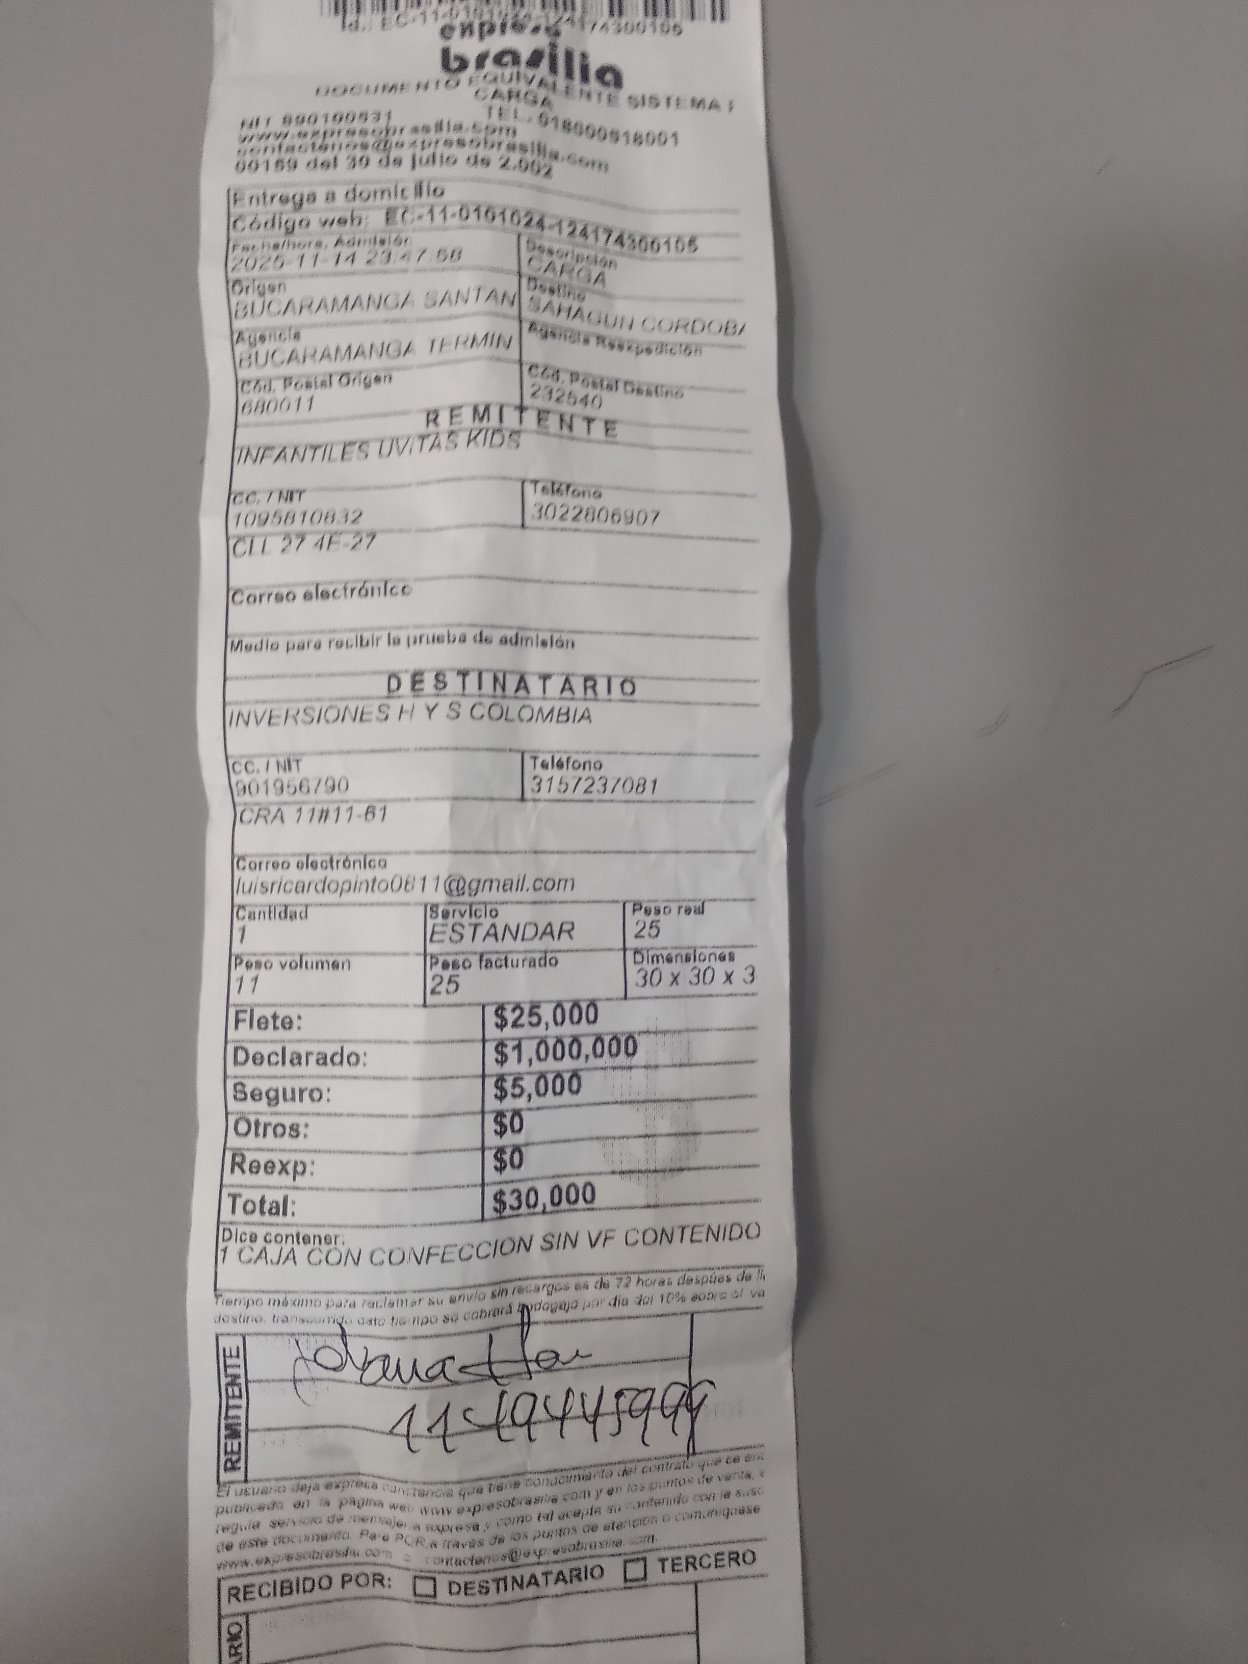 Id.: EC-11-0101024-124174300105
expreso
brasilia
DOCUMENTO EQUIVALENTE SISTEMA
CARGA
NIT 890100531 TEL. 018000518001
www.expresobrasilia.com
contactenos@expresobrasilia.com
00189 del 30 de julio de 2.002
Entrega a domicilio
Código web: EC-11-0101024-124174300105
Fecha/hora, Admisión Descripción
2025-11-14 23:47:58 CARGA
Origen Destino
BUCARAMANGA SANTAN SAHAGUN CORDOBA
Agencia Agencia Reexpedición
BUCARAMANGA TERMIN
Cód. Postal Origen Cód. Postal Destino
680011 232540
REMITENTE
INFANTILES UVITAS KIDS
CC. / NIT Teléfono
1095810832 3022806907
CLL 27 4E-27
Correo electrónico
Medio para recibir la prueba de admisión
DESTINATARIO
INVERSIONES H Y S COLOMBIA
CC. / NIT Teléfono
901956790 3157237081
CRA 11#11-61
Correo electrónico
luisricardopinto0811@gmail.com
Cantidad Servicio Peso real
1 ESTANDAR 25
Peso volumen Peso facturado Dimensiones
11 25 30 x 30 x 3
Flete: $25,000
Declarado: $1,000,000
Seguro: $5,000
Otros: $0
Reexp: $0
Total: $30,000
Dice contener:
1 CAJA CON CONFECCION SIN VF CONTENIDO
Tiempo máximo para reclamar su envío sin recargos es de 72 horas despúes de
destino, transcurrido este tiempo se cobrará bodegaje por día del 10% sobre el va
REMITENTE
El usuario deja expresa constancia que tiene conocimiento del contrato que se enc
publicado en la página web www.expresobrasilia.com y en los puntos de venta,
regula servicio de mensajería expresa y como tal acepta su contenido con la susc
de este documento. Para PQR a través de los puntos de atencion o comuniquese
www.expresobrasilia.com o contactenos@expresobrasilia.com.
RECIBIDO POR: DESTINATARIO TERCERO
ARIO